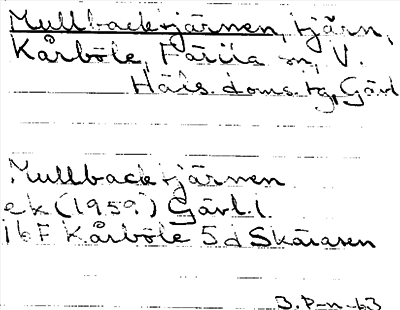 Mullbacktjärnen, tjärn,
Kårböle, Färila sn, V.
Häls. doms. tg, Gävl
Mullbacktjärnen
ek (1959) Gävl. l.
16F Kårböle 5d Skärasen
3. P-n -63